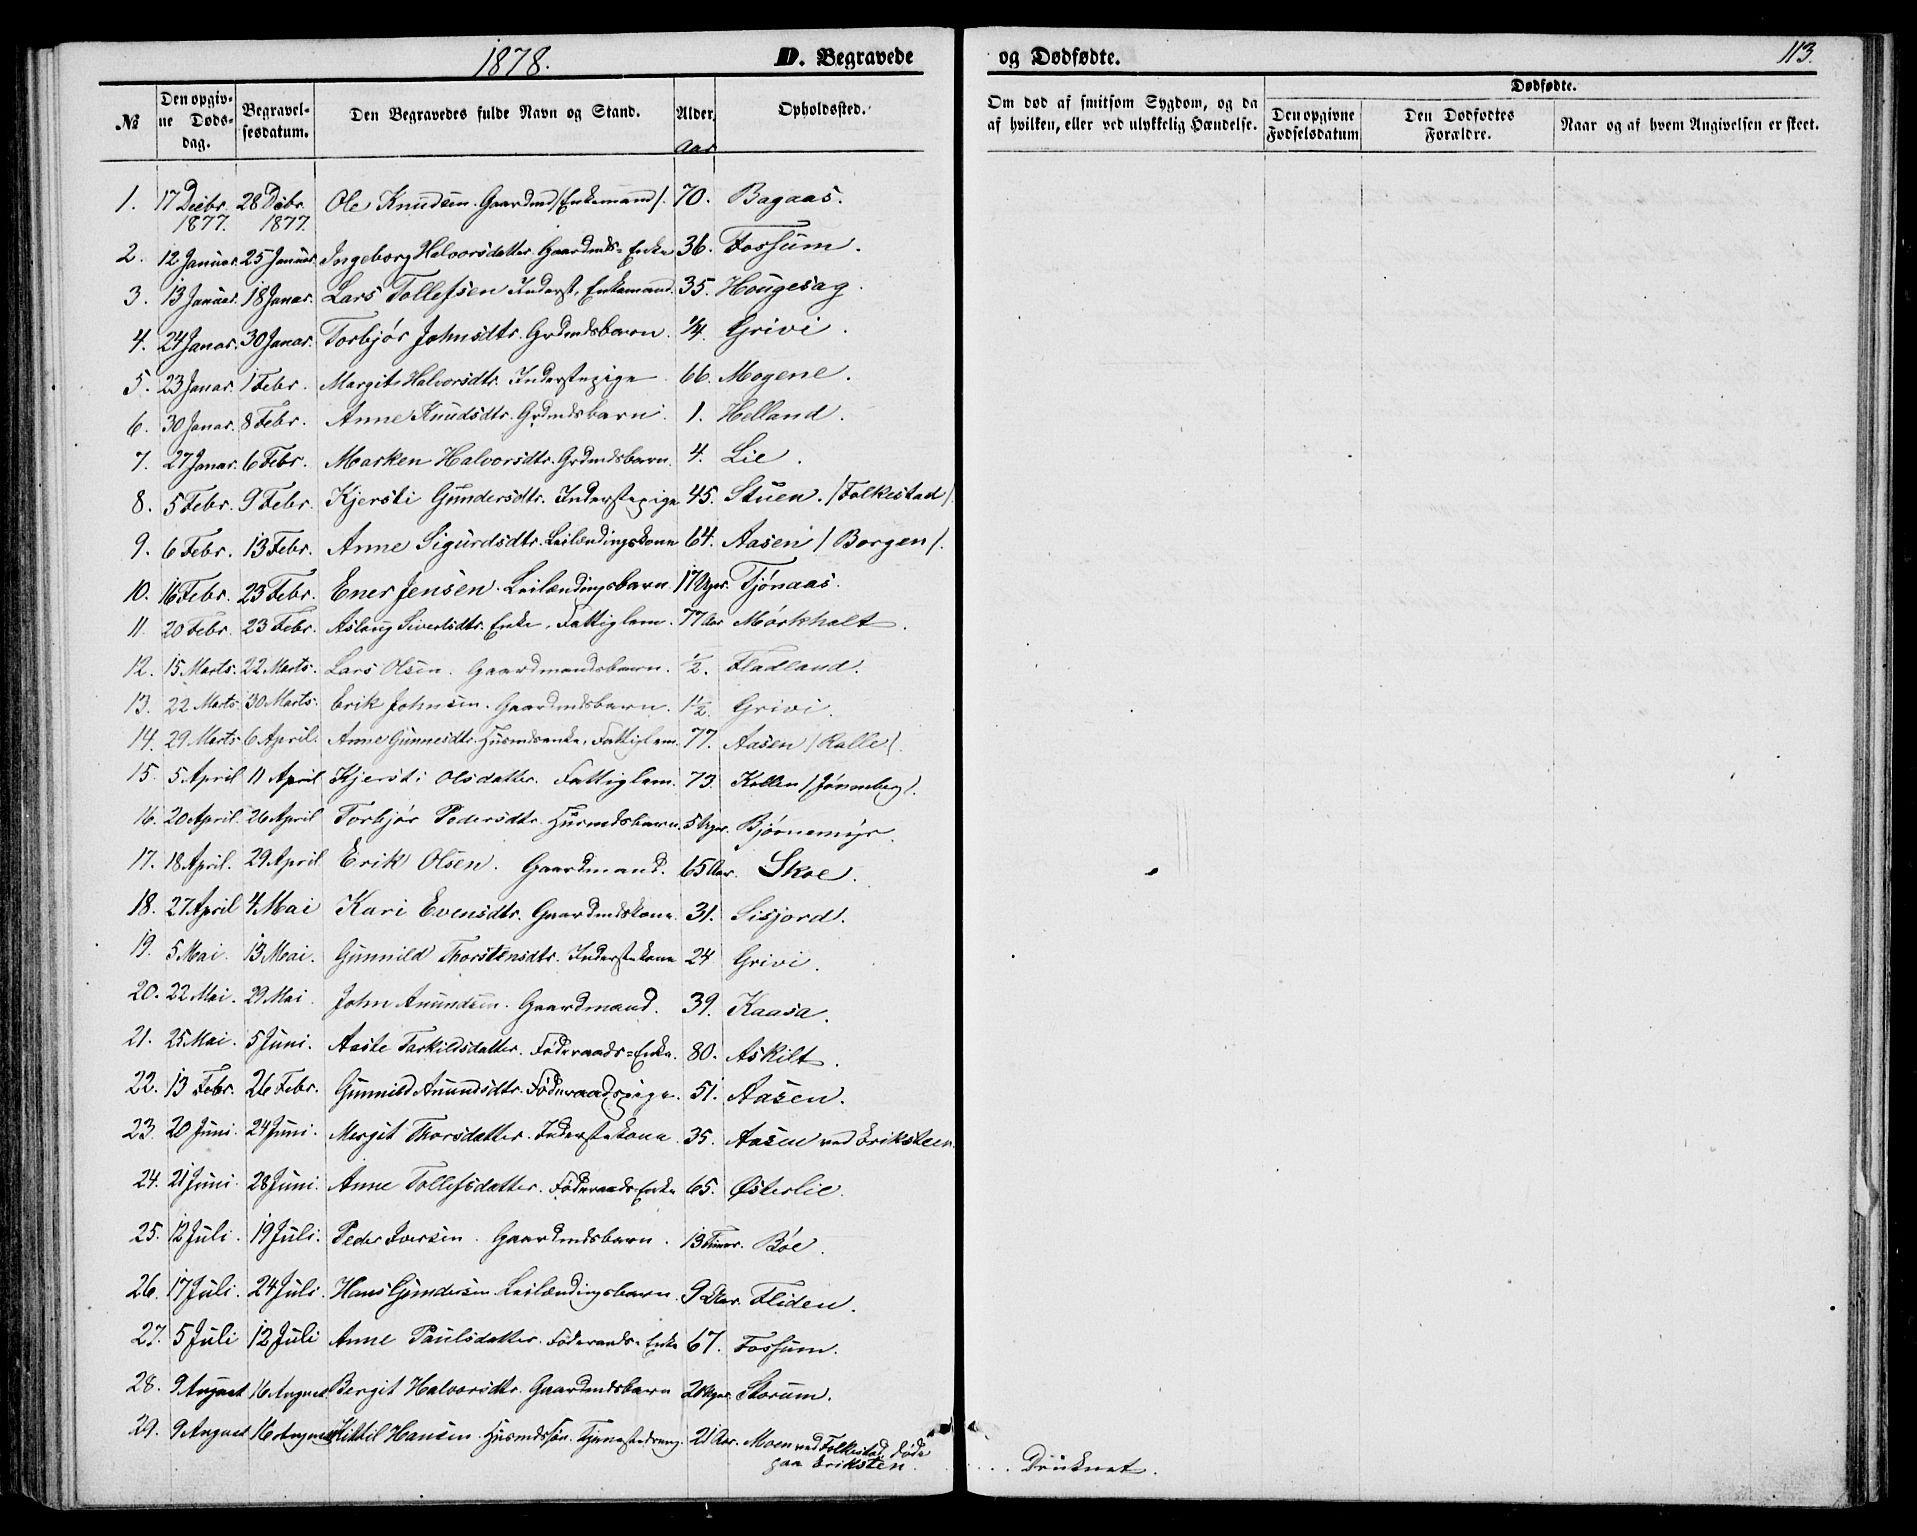 1878.
D. Begravede
og Dødfødte.
113.
№
Den opgivne Dødsdag.
Begravelsesdatum.
Den Begravedes fulde Navn og Stand.
Alder.
Aar
Opholdssted.
Om død af smitsom Sygdom, og da af hvilken, eller ved ulykkelig Hændelse.
Dødfødte.
Den opgivne Fødselsdatum
Den Dødfødtes Forældre.
Naar og af hvem Angivelsen er skeet.
1. 17 Decbr. 1877. 28 Decbr. 1877. Ole Knudsen. Gaardmd /Enkemand/. 70. Bagaas.
2. 12 Januar. 25 Januar. Ingeborg Halvorsdatter. Gaardmds-Enke 36. Fossum.
3. 13 Januar. 18 Januar. Lars Tollefsen Inderst, Enkemand. 35. Hougesag.
4. 24 Januar. 30 Januar. Torbjør Johnsdtr. Grdmdsbarn. 1/4. Grivi.
5. 23 Januar. 1 Febr. Margit Halvorsdtr. Inderstpige 66. Mogene.
6. 30 Januar. 8 Febr. Anne Knudsdtr. Grdmdsbarn. 1. Helland.
7. 27 Januar. 6 Febr. Marken Halvorsdtr. Grdmdsbarn. 4. Lie.
8. 5 Febr. 9 Febr. Kjersti Gundersdtr. Inderstepige 45. Stuen. /Folkestad/.
9. 6 Febr. 13 Febr. Anne Sigurdsdtr. Leilændingskone 64. Aasen /Borgen/.
10. 16 Febr. 23 Febr. Ener Jensen. Leilændingsbarn 17 Uger. Tjønaas.
11. 20 Febr. 23 Febr. Aslaug Sivertsdtr. Enke, Fattiglem. 77 Aar Mørkholt.
12. 15 Marts. 22 Marts. Lars Olsen. Gaardmandsbarn. 1/2. Fladland.
13. 22 Marts 30 Marts. Erik Johnsen. Gaardmdsbarn. 1 1/2. Grivi.
14. 29 Marts 6 April. Anne Gunnesdtr. Husmdsenke, Fattiglem. 77. Aasen /Kalle/.
15. 5 April 11 April Kjersti Olsdatter. Fattiglem. 73. Kollen /Jønneberg/.
16. 20 April. 26 April Torbjør Pedersdtr. Husmdsbarn. 5 Uger. Bjørnemyr.
17. 18 April. 29 April Erik Olsen. Gaardmand. 65 Aar. Skoe.
18. 27 April 4 Mai Kari Evensdtr. Gaardmdskone. 31. Sisjord.
19. 5 Mai. 13 Mai. Gunnild Thorstensdtr. Inderstekone 24 Grivi.
20. 22 Mai. 29 Mai. John Anundsen. Gaardmand. 39. Kaasa.
21. 25 Mai. 5 Juni. Aaste Tarkildsdatter. Føderaads-Enke. 80. Askilt.
22. 13 Febr. 26 Febr. Gunnild Anundsdtr. Føderaadspige. 51. Aasen.
23. 20 Juni. 24 Juni. Margit Thorsdatter. Inderstekone. 35. Aasen ved Eriksteen.
24. 21 Juni. 28 Juni. Anne Tollefsdatter. Føderaads Enke 65. Østerlie.
25. 12 Juli. 19 Juli. Peder Iversen. Gaardmdsbarn. 13 Timer. Bøe.
26. 17 Juli. 24 Juli. Hans Gundersen Leilændingsbarn. 9 Aar. Fliden.
27. 5 Juli 12 Juli Anne Paulsdatter. Føderaads-Enke 67. Fossum.
28. 9 August 16 August Bergit Halvorsdtr. Gaardmdsbarn 2 Uger. Storum.
29. 9 August 16 August Kittil Hansen. Husmdssøn. Tjenestedreng. 21 Aar. Moen ved Folkestad, døde
paa Eriksten. Druknet.